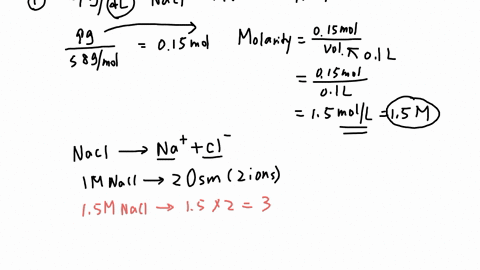 ① 9g/dL NaCl
9g / 58g/mol = 0.15 mol
Molarity = 0.15 mol / vol. ↖ 0.1 L
= 0.15 mol / 0.1 L
= 1.5 mol/L = 1.5 M
NaCl → Na⁺ + Cl⁻
1M NaCl → 2 Osm (2 ions)
1.5M NaCl → 1.5 × 2 = 3